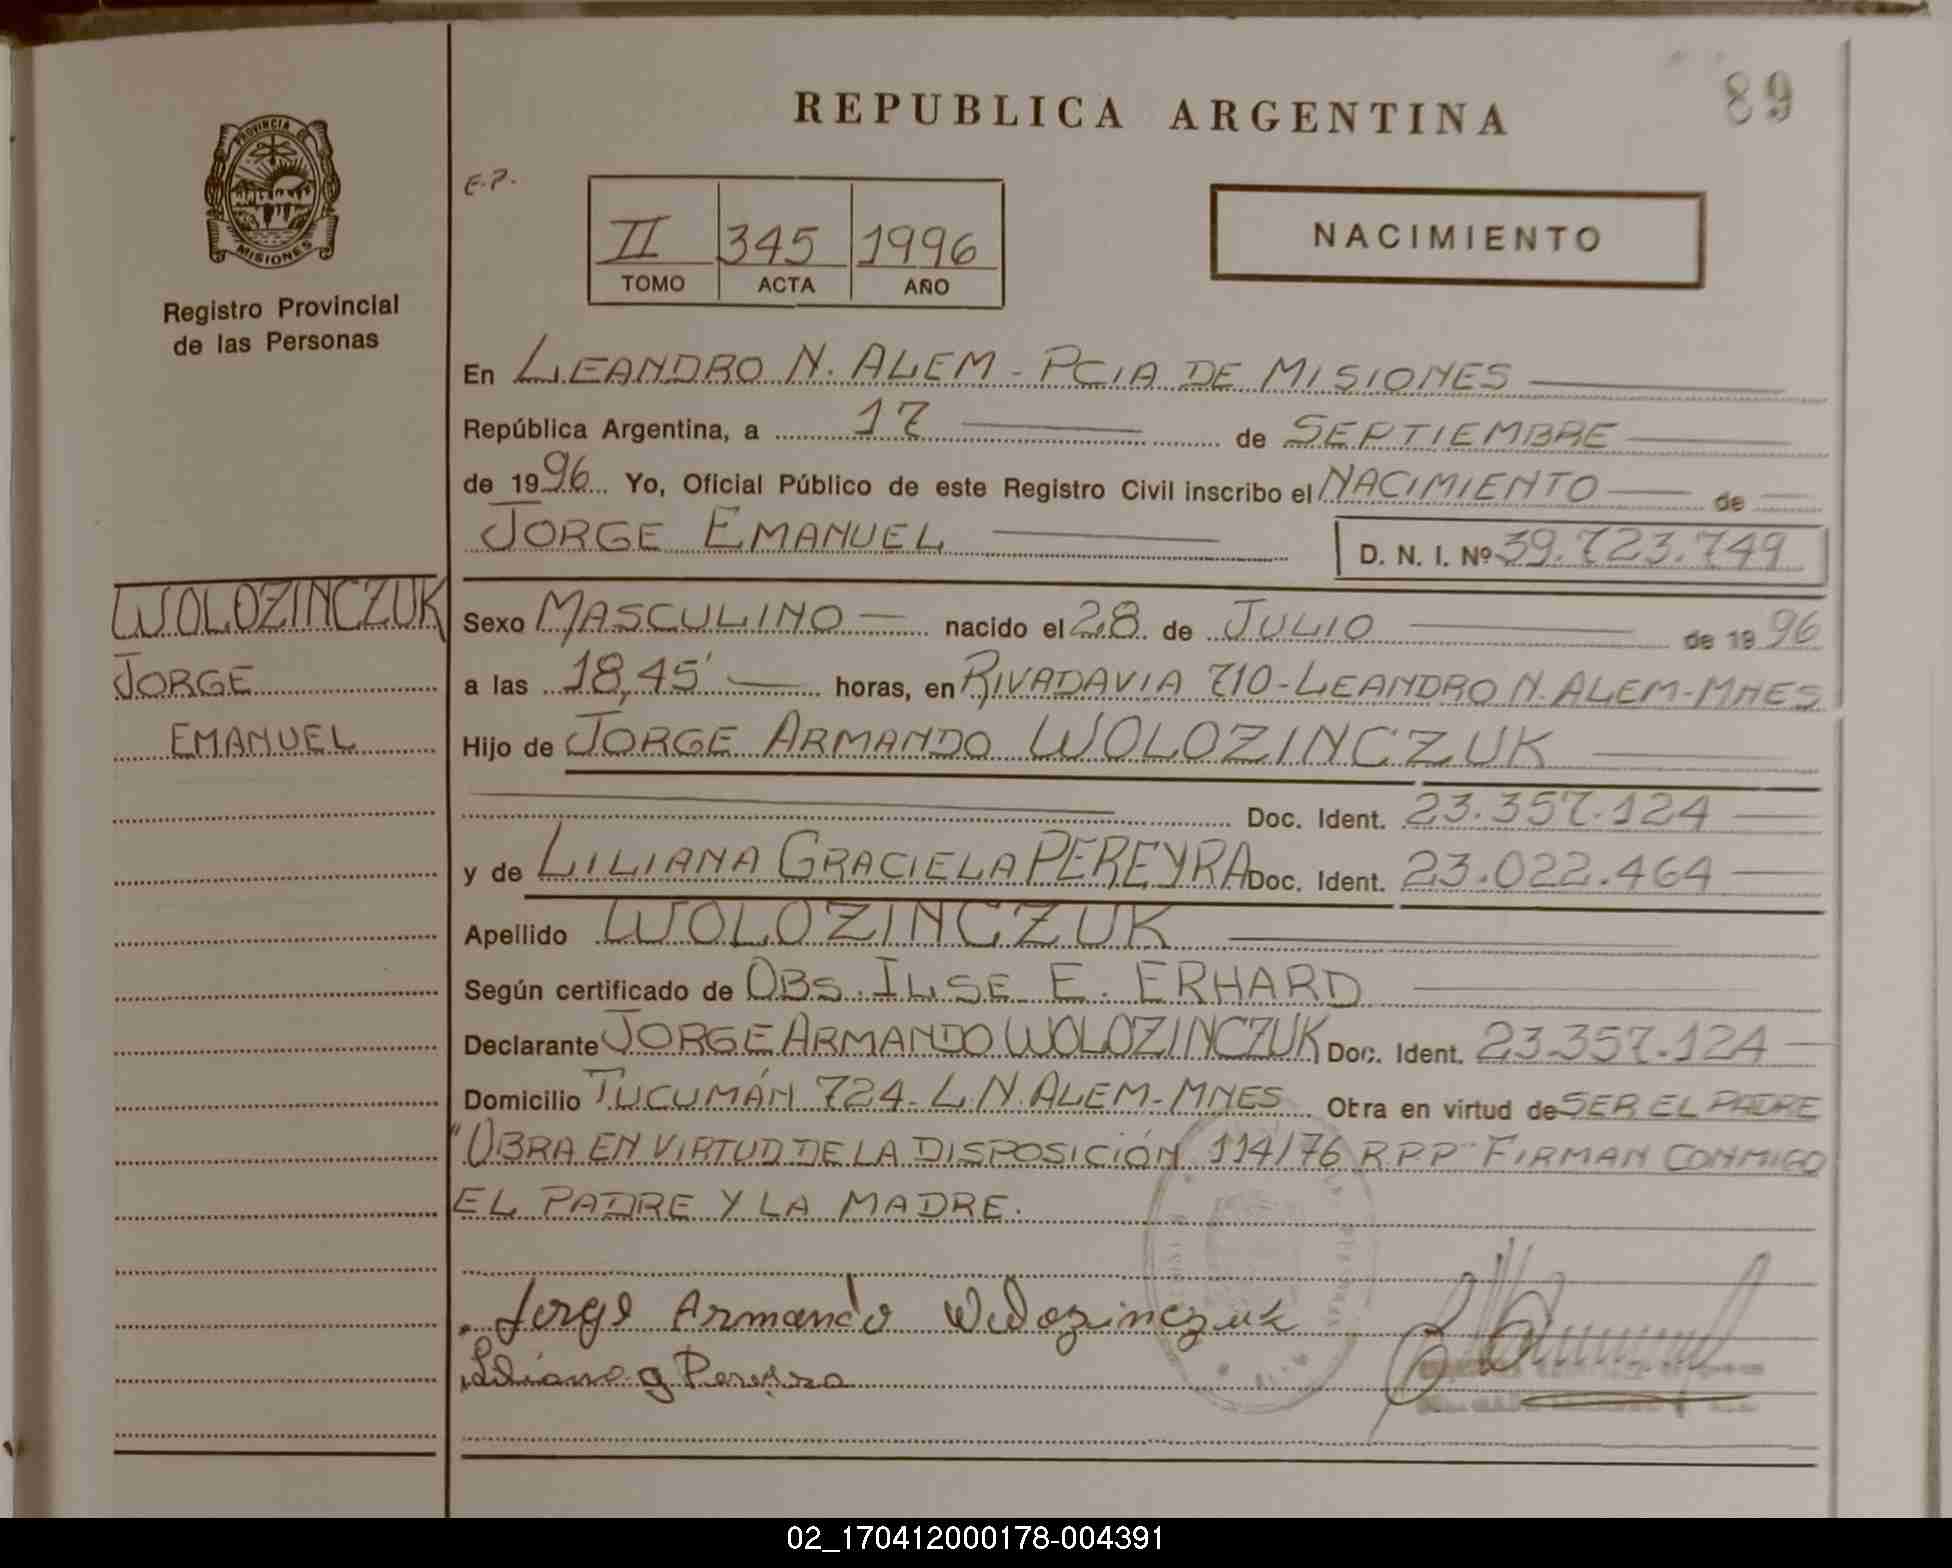 REPUBLICA ARGENTINA
89
PROVINCIA DE
MISIONES
Registro Provincial
de las Personas
E.P.
II 345 1996
TOMO ACTA AÑO
NACIMIENTO
En LEANDRO N. ALEM - PCIA DE MISIONES
República Argentina, a 17 de SEPTIEMBRE
de 1996 Yo, Oficial Público de este Registro Civil inscribo el NACIMIENTO de
JORGE EMANUEL D. N. I. Nº 39.723.749
WOLOZINCZUK
JORGE
EMANUEL
Sexo MASCULINO nacido el 28 de JULIO de 1996
a las 18,45' horas, en RIVADAVIA 710-LEANDRO N. ALEM-MNES
Hijo de JORGE ARMANDO WOLOZINCZUK
Doc. Ident. 23.357.124
y de LILIANA GRACIELA PEREYRA Doc. Ident. 23.022.464
Apellido WOLOZINCZUK
Según certificado de OBS. ILSE E. ERHARD
Declarante JORGE ARMANDO WOLOZINCZUK Doc. Ident. 23.357.124
Domicilio TUCUMÁN 724-L.N.ALEM-MNES Obra en virtud de SER EL PADRE
"OBRA EN VIRTUD DE LA DISPOSICIÓN 114/76 R.P.P" FIRMAN CONMIGO
EL PADRE Y LA MADRE.
Jorge Armando Wolozinczuk
Liliana G Pereyra
02_170412000178-004391